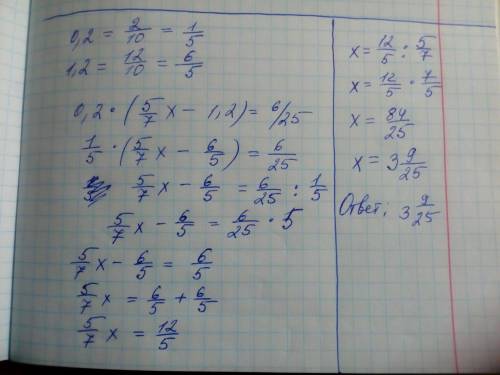 0,2 = 2/10 = 1/5
1,2 = 12/10 = 6/5
0,2 · (5/7 x − 1,2) = 6/25
1/5 · (5/7 x − 6/5) = 6/25
5/7 x − 6/5 = 6/25 : 1/5
5/7 x − 6/5 = 6/25 · 5
5/7 x − 6/5 = 6/5
5/7 x = 6/5 + 6/5
5/7 x = 12/5
x = 12/5 : 5/7
x = 12/5 · 7/5
x = 84/25
x = 3 9/25
Ответ: 3 9/25